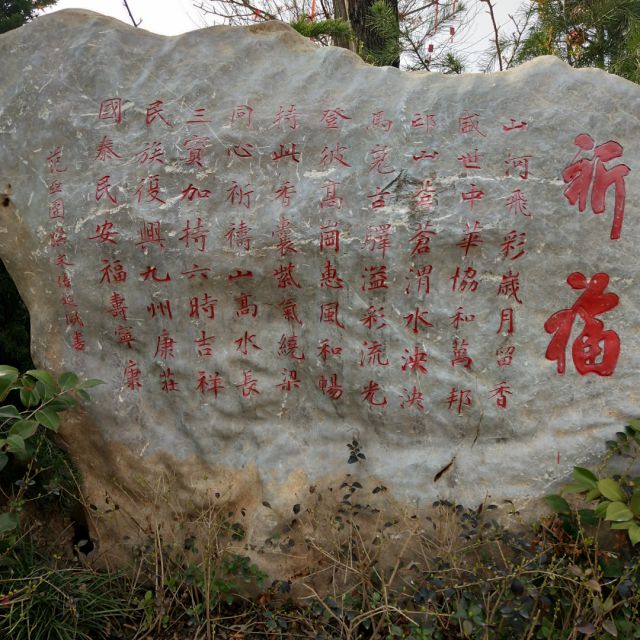 祈福
山河飛彩歲月留香
盛世中華協和萬邦
邙山蒼蒼渭水泱泱
馬克吉驛溢彩流光
登彼高岡惠風和暢
積此香囊紫氣繞梁
同心祈禱山高水長
三寶加持六時吉祥
民族復興九州康壯
國泰民安福壽安康